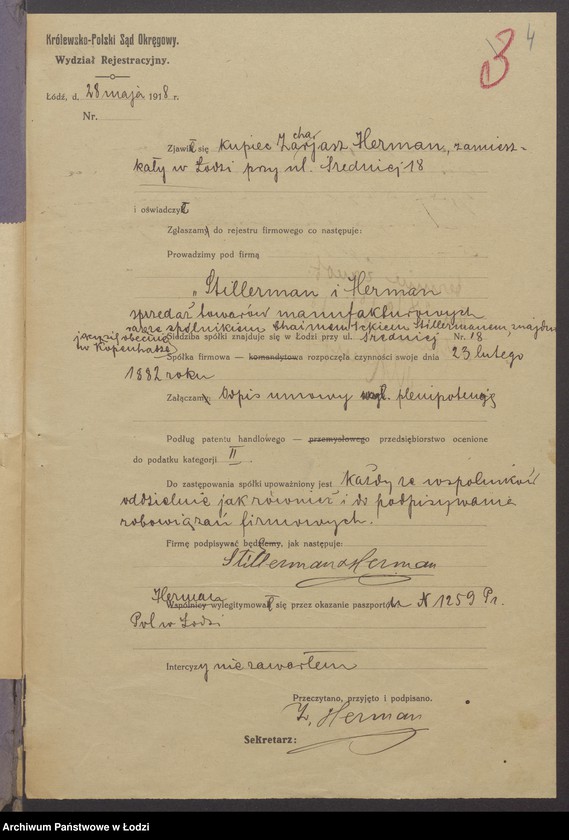 Królewsko-Polski Sąd Okręgowy.
Wydział Rejestracyjny.
3 4
Łódź, d. 28 maja 1918 r.
Nr.
Zjawił się kupiec Zacharjasz Herman, zamiesz-
kały w Łodzi przy ul. Średniej 18
i oświadczył
Zgłaszam do rejestru firmowego co następuje:
Prowadzimy pod firmą
„Stillerman i Herman
sprzedaż towarów manufakturowych
spólnikiem Chaimem Stillermanem, znajdu
jącym się obecnie
w Kopenhadze
Siedziba spółki znajduje się w Łodzi przy ul. Średniej Nr. 18
Spółka firmowa — komandytowa rozpoczęła czynności swoje dnia 23 lutego
1882 roku
Załączam: Odpis umowy wzgl. plenipotencję
Podług patentu handlowego — przemysłowego przedsiębiorstwo ocenione
do podatku kategorji II
Do zastępowania spółki upoważniony jest każdy ze wspólników
oddzielnie jak również i do podpisywania
zobowiązań firmowych.
Firmę podpisywać będziemy, jak następuje:
Stillerman & Herman
Herman
Wspólnicy wylegitymował się przez okazanie paszportu N 1259 Pr.
Pol w Łodzi
Intercyzy nie zawarłem
Przeczytano, przyjęto i podpisano.
Z. Herman
Sekretarz:
Archiwum Państwowe w Łodzi